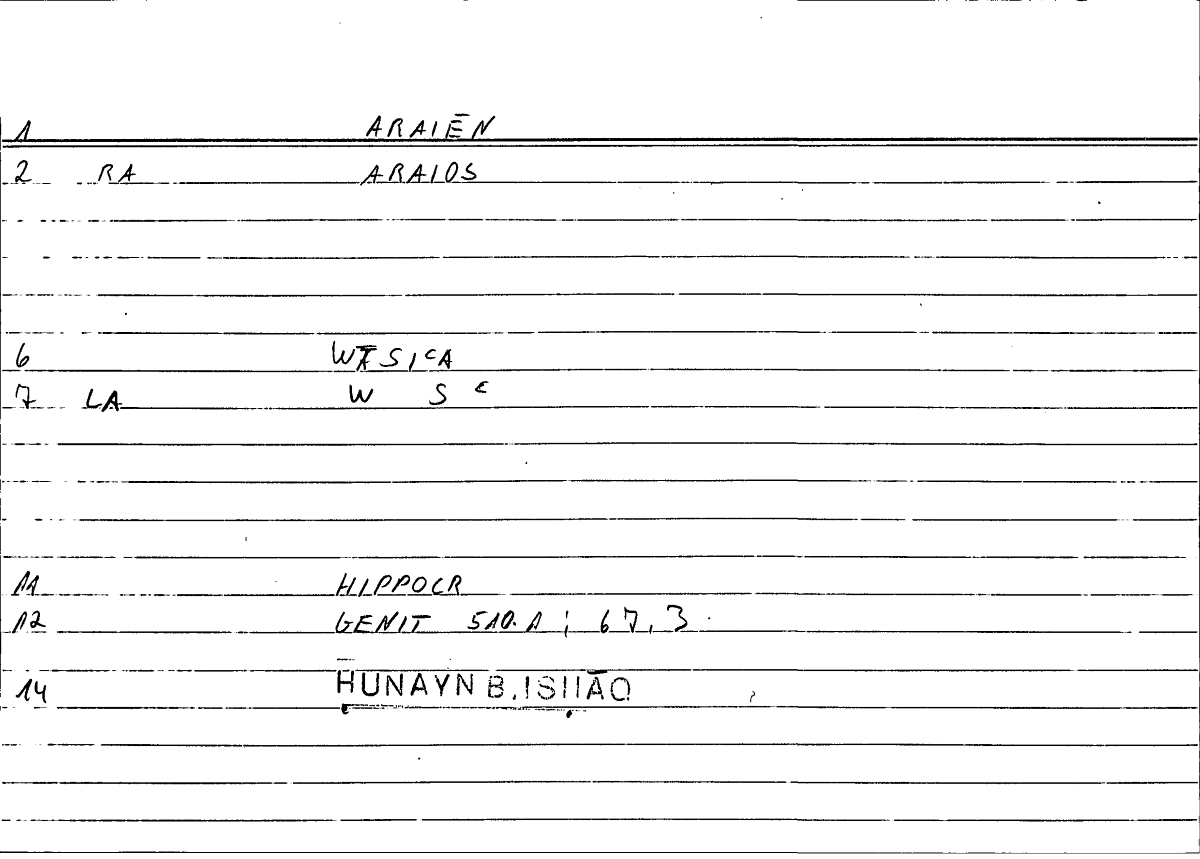 1 ARAIĒN
2 RA ARAIOS
6 WĀSIᶜA
7 LA W S ᶜ
11 HIPPOCR
12 GENIT 510.1 ; 67,3
14 HUNAYN B. ISHĀQ